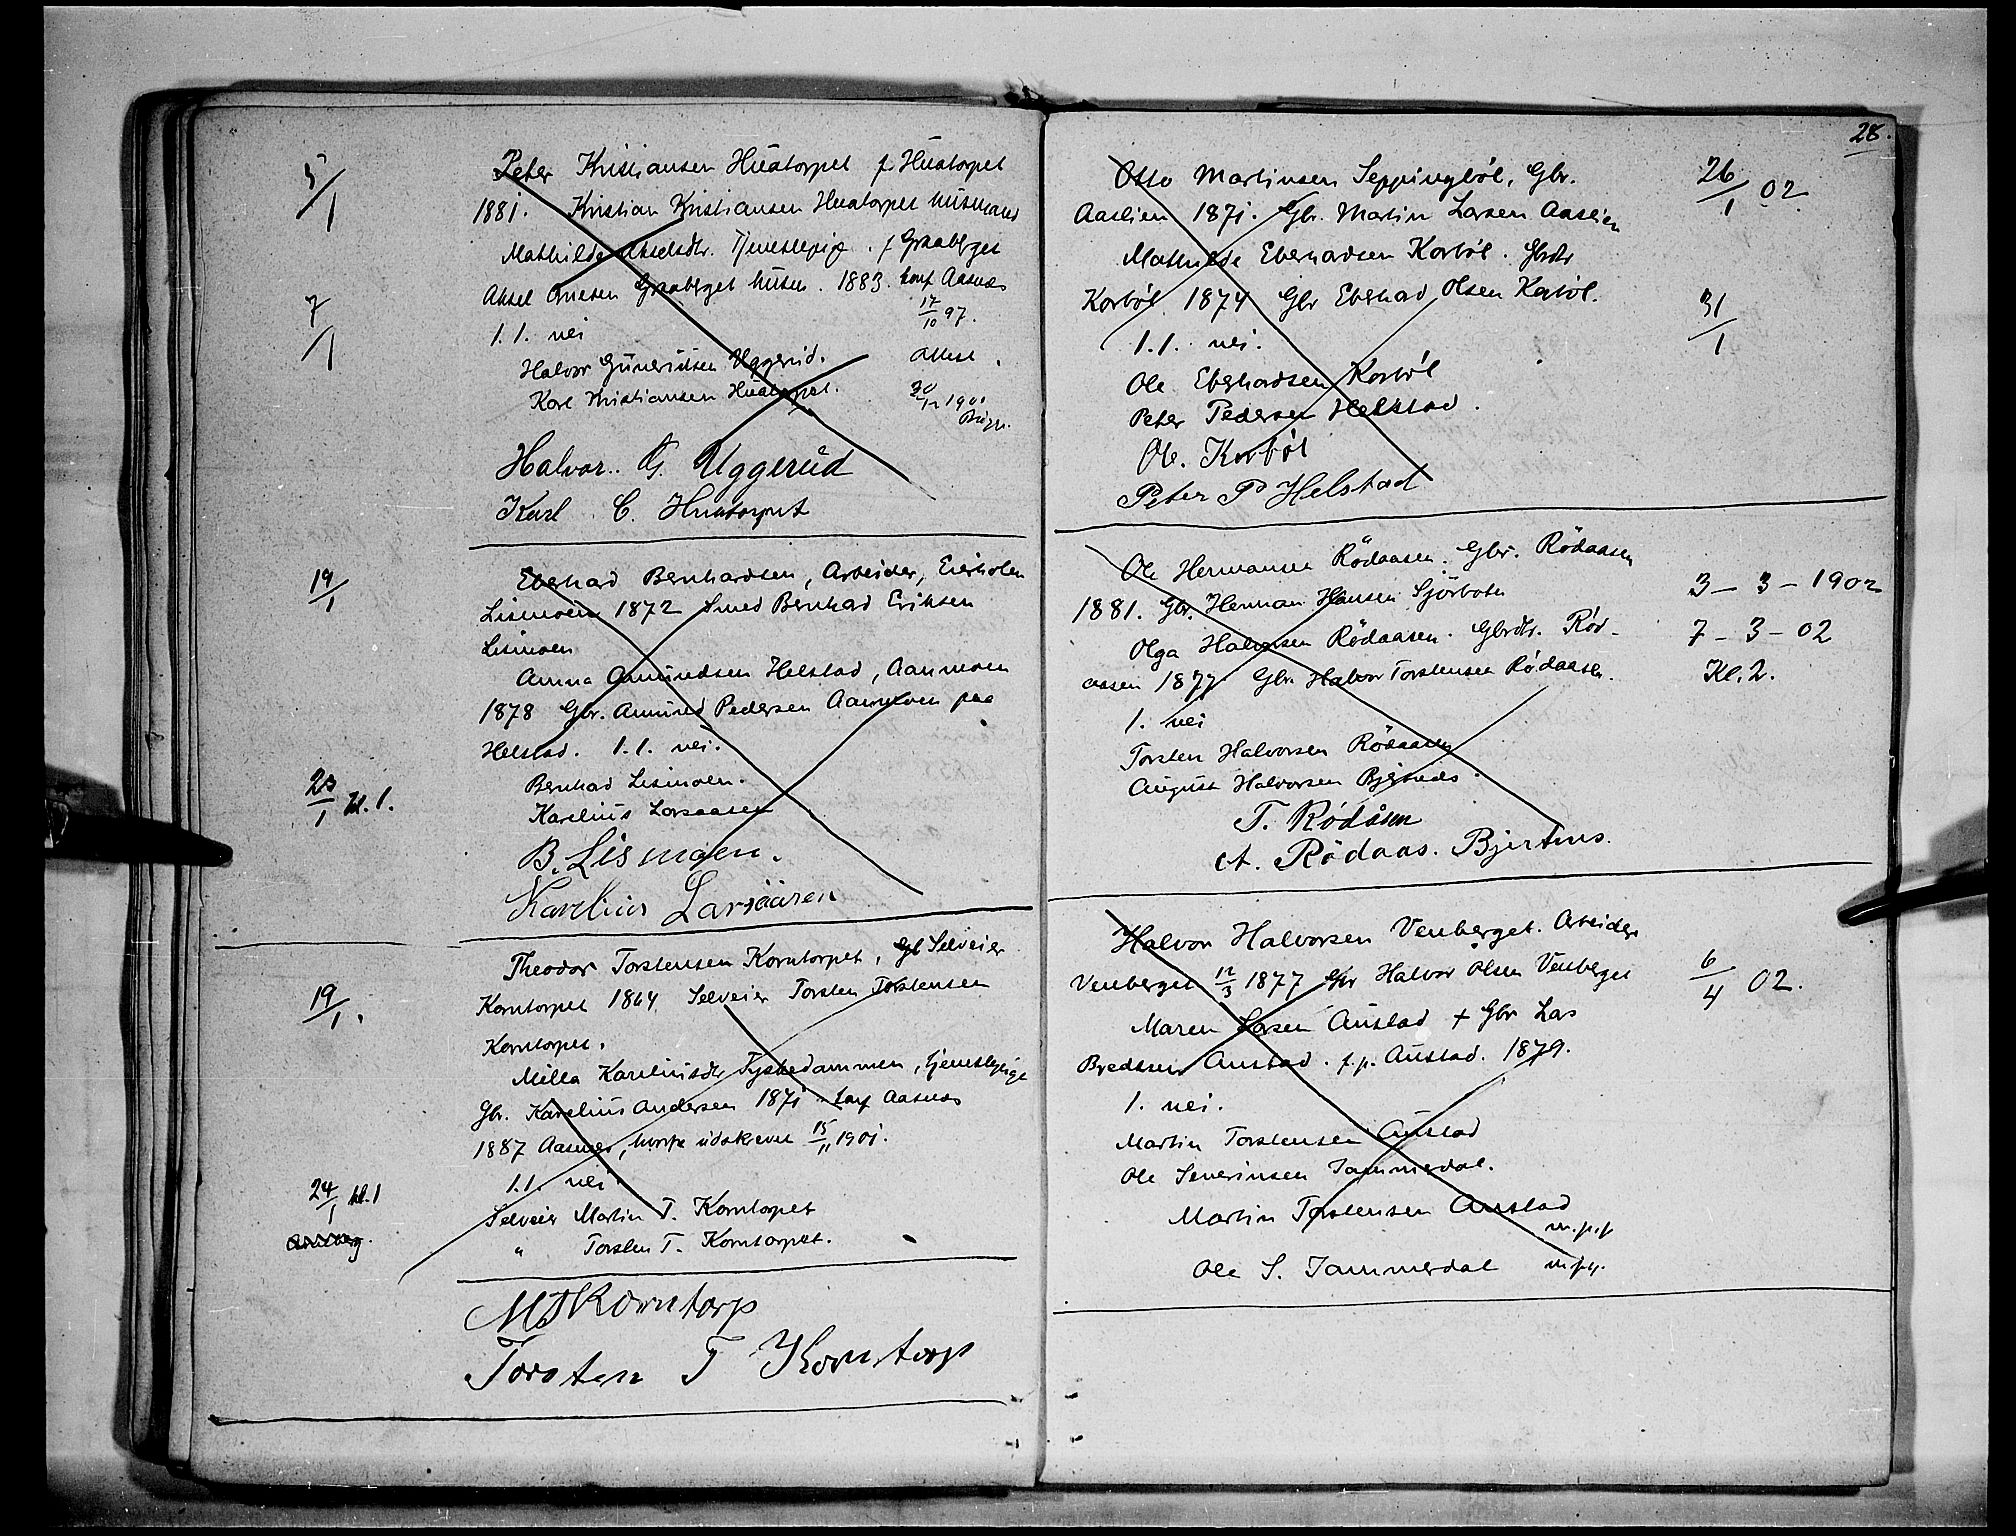 5/1
Peter Kristiansen Huatorpet f Huatorpet
1881. Kristian Kristiansen Huatorpet husmand
Mathilde Akselsdtr. Tjenestepige . f Graaberget
Aksel Graaberget husm. 1883. konf Aasnes
17/10 97.
7/1
1.1. nei
Halvor Gunerusen Uggerud. Attest.
Karl Kristiansen Huatorpet. 30/12 1901
Halvor. G. Uggerud
Karl C. Huatorpet
19/1
Eberhad Bernhardsen, Arbeider,
Lismoen 1872 Smed Bernhad Eriksen
Lismoen
Anna Amundsen Helstad, Aanmoen
1878 Gbr. Amund Pedersen Aanmoen paa
Helstad. 1.1. nei.
23/1 kl.1.
Bernhad Lismoen.
Karelius Larsaasen
B. Lismoen.
Karelius Larsåasen
19/1.
Theodor Torstensen Korntorpet, Selveier
Korntorpet 1864. Selveier Torsten Torstensen
Korntorpet.
Milla Kareliusdtr Tyskedammen, tjenestepige
Gbr. Karelius Andersen 1871 konf Aasnes
1887 Aasnes, udskreven 15/11 1901.
24/1 kl.1
1.1. nei
Selveier Martin T. Korntorpet
" Torsten T. Korntorpet.
M T Korntorp
Torsten T Korntorp
28.
Otto Martinsen Seppingböl, Gbr.
26/1 02
Aaslien 1871. Gbr. Martin Larsen Aaslien
Mathilde Eberhadsen Korböl. Gbrdtr
Korböl 1874 Gbr Eberhad Olsen Korböl.
31/1
1.1. nei.
Ole Eberhadsen Korböl
Peter Pedersen Helstad.
Ole. Korböl
Peter P Helstad
Ole Hermansen Rödaasen. Gbr. Rödaasen
3 – 3 – 1902
1881. Gbr. Herman Hansen Sjörbotn
Olga Halvorsen Rödaasen. Gbrdtr. Röd-
7 – 3 – 02
aasen 1877 Gbr. Halvor Torstensen Rödaasen.
Kl. 2.
1. nei
Torsten Halvorsen Rödaasen
August Halvorsen Bjertnes.
T. Rödåsen
A. Rödaas. Bjertnes.
Halvor Halvorsen Venberget. Arbeider
Venberget 12/3 1877 Gbr Halvor Olsen Venberget
6/4 02.
Maren Larsen Austad + Gbr Lars
Bredesen Austad. f.p. Austad. 1879.
1. nei.
Martin Torstensen Austad
Ole Severinsen Jammerdal.
Martin Torstensen Austad
m.p.p
Ole S. Jammerdal m.p.p.